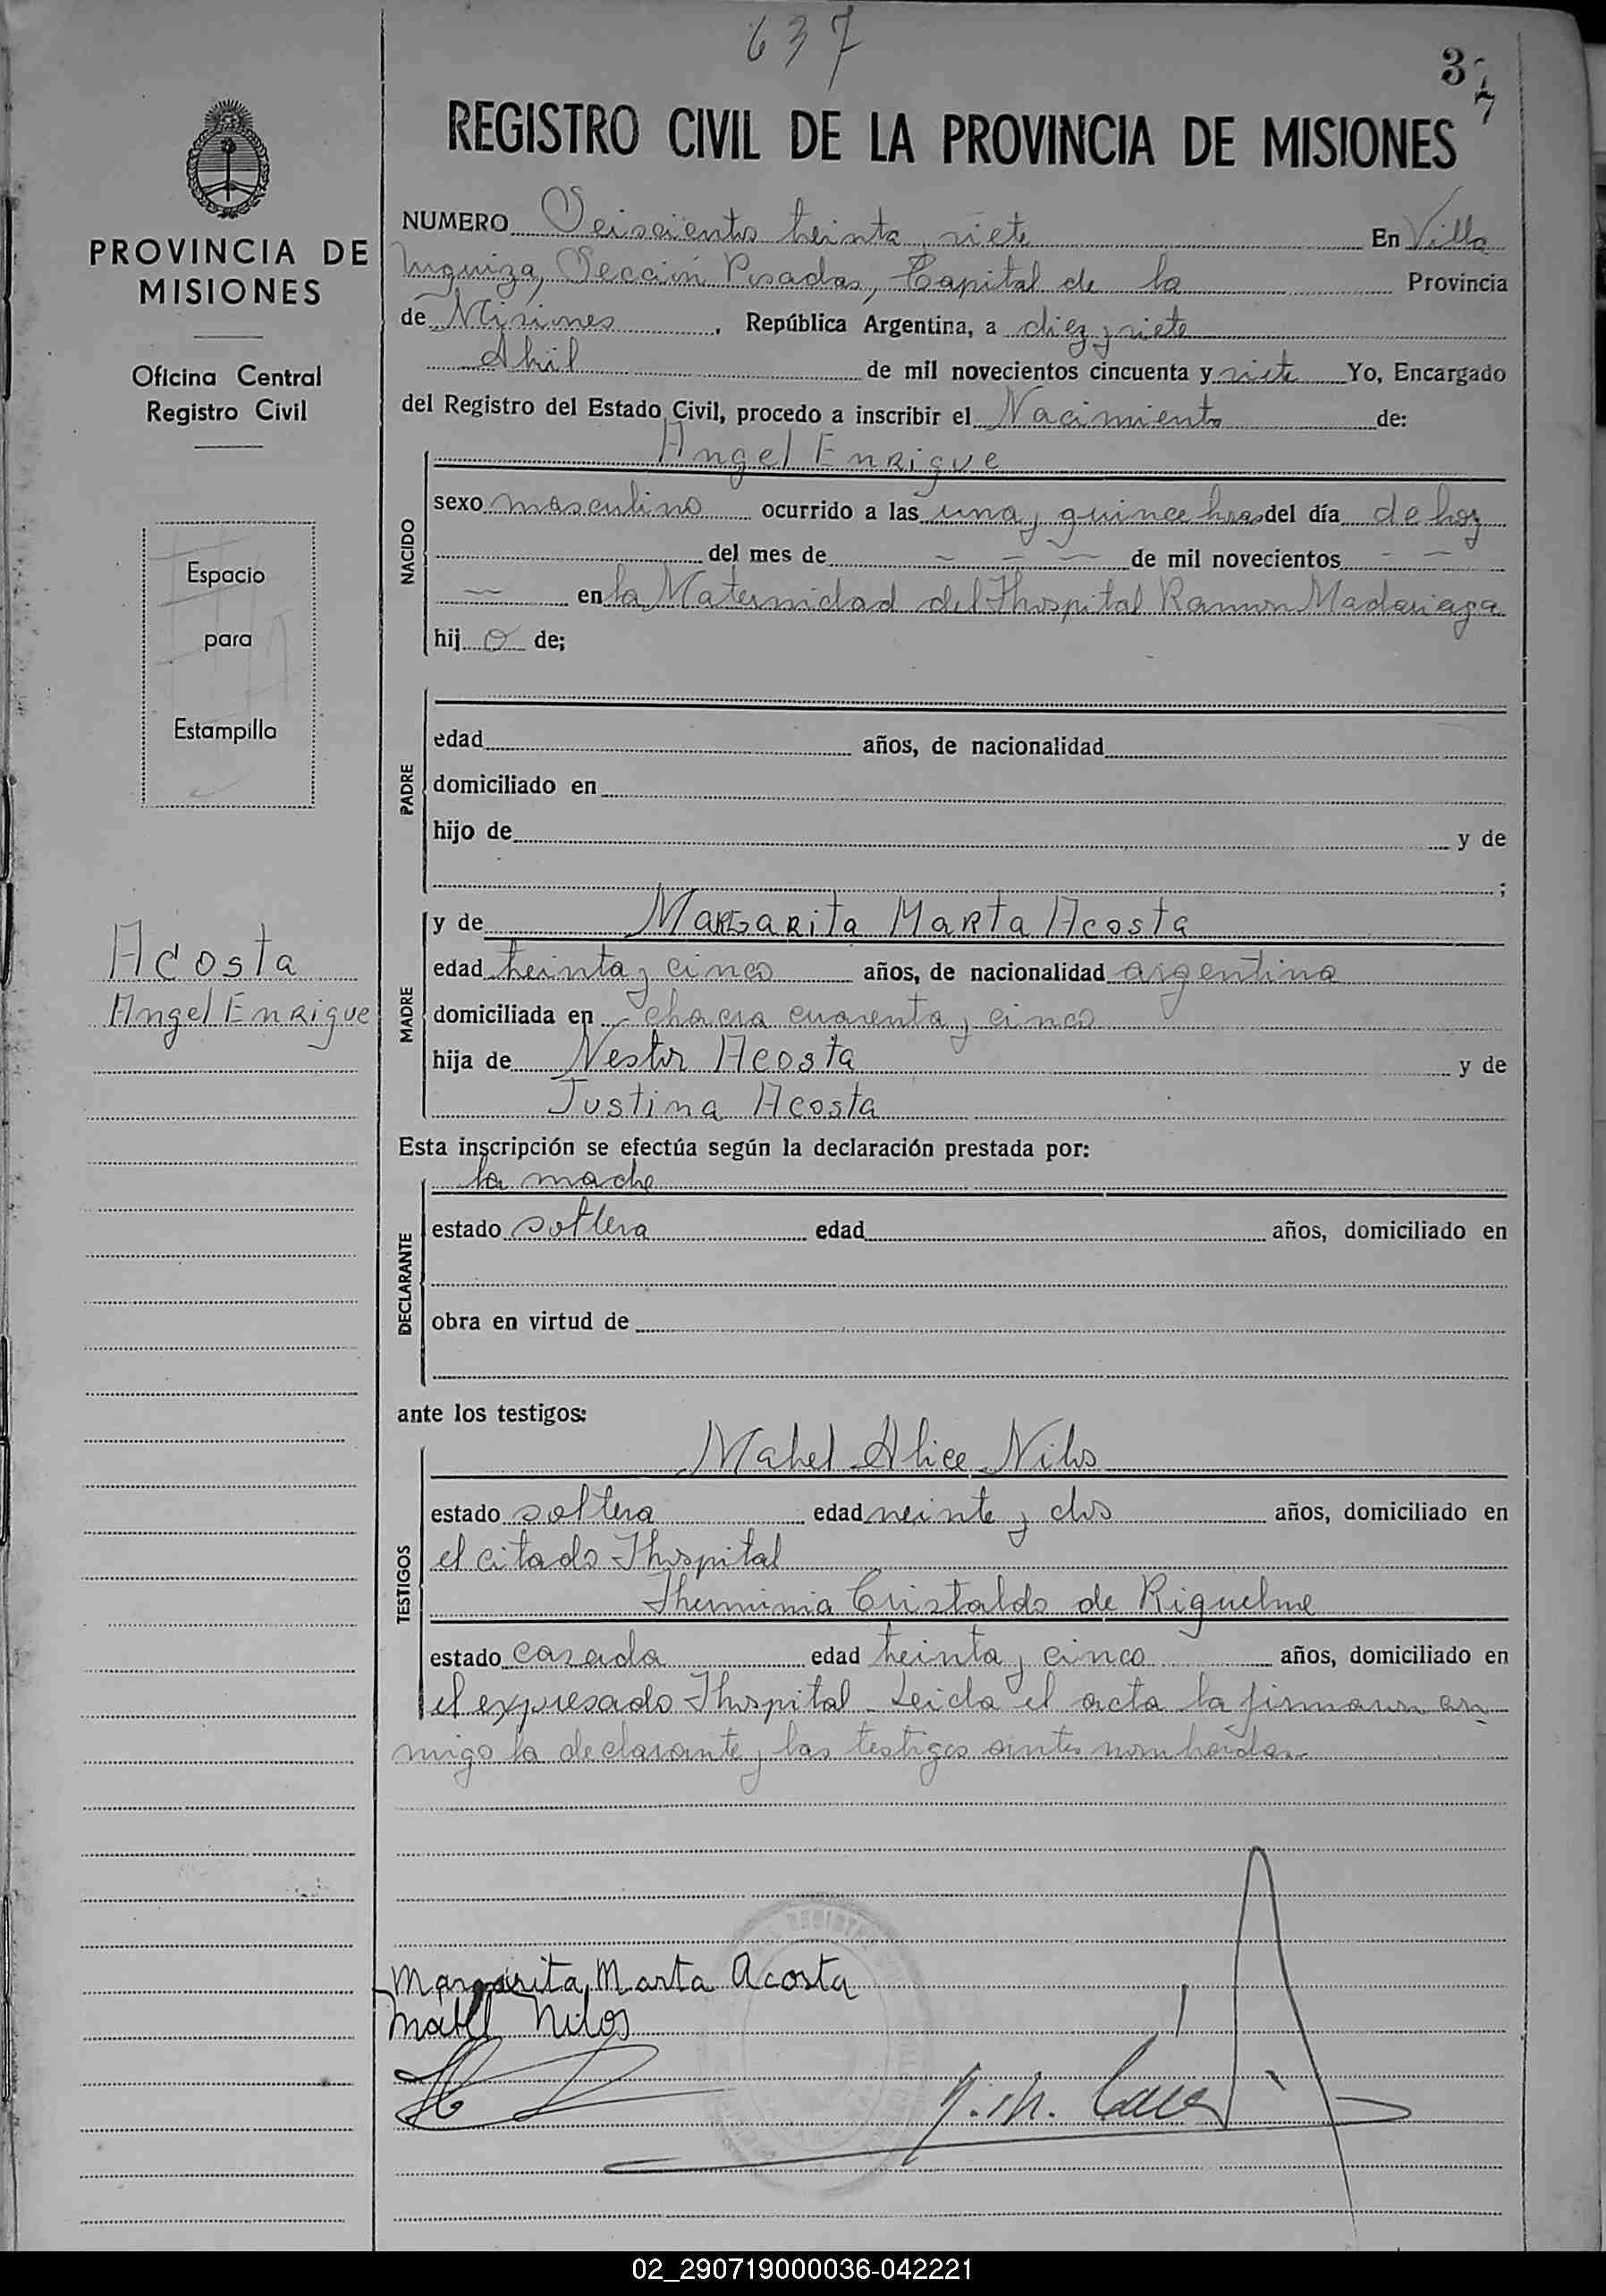 637
37
REGISTRO CIVIL DE LA PROVINCIA DE MISIONES
PROVINCIA DE
MISIONES
Oficina Central
Registro Civil
Espacio
para
Estampilla
Acosta
Angel Enrique
NUMERO Seiscientos treinta y siete En Villa
Urquiza, Sección Posadas, Capital de la Provincia
de Misiones, República Argentina, a diez y siete
Abril de mil novecientos cincuenta y siete Yo, Encargado
del Registro del Estado Civil, procedo a inscribir el Nacimiento de:
Angel Enrique
NACIDO
sexo masculino ocurrido a las una y quince hras del día de hoy
del mes de — — — de mil novecientos — —
— en la Maternidad del Hospital Ramon Madariaga
hijo de;
PADRE
edad años, de nacionalidad
domiciliado en
hijo de y de
;
MADRE
y de Margarita Marta Acosta
edad treinta y cinco años, de nacionalidad argentina
domiciliada en chacra cuarenta y cinco
hija de Nestor Acosta y de
Justina Acosta
Esta inscripción se efectúa según la declaración prestada por:
DECLARANTE
la madre
estado soltera edad años, domiciliado en
obra en virtud de
ante los testigos:
TESTIGOS
Mabel Alice Nilos
estado soltera edad veinte y dos años, domiciliado en
el citado Hospital
Herminia Cristaldo de Riquelme
estado casada edad treinta y cinco años, domiciliado en
el expresado Hospital. Leida el acta la firmaron con
migo la declarante y las testigos antes nombradas
Margarita Marta Acosta
Mabel Nilos
02_290719000036-042221